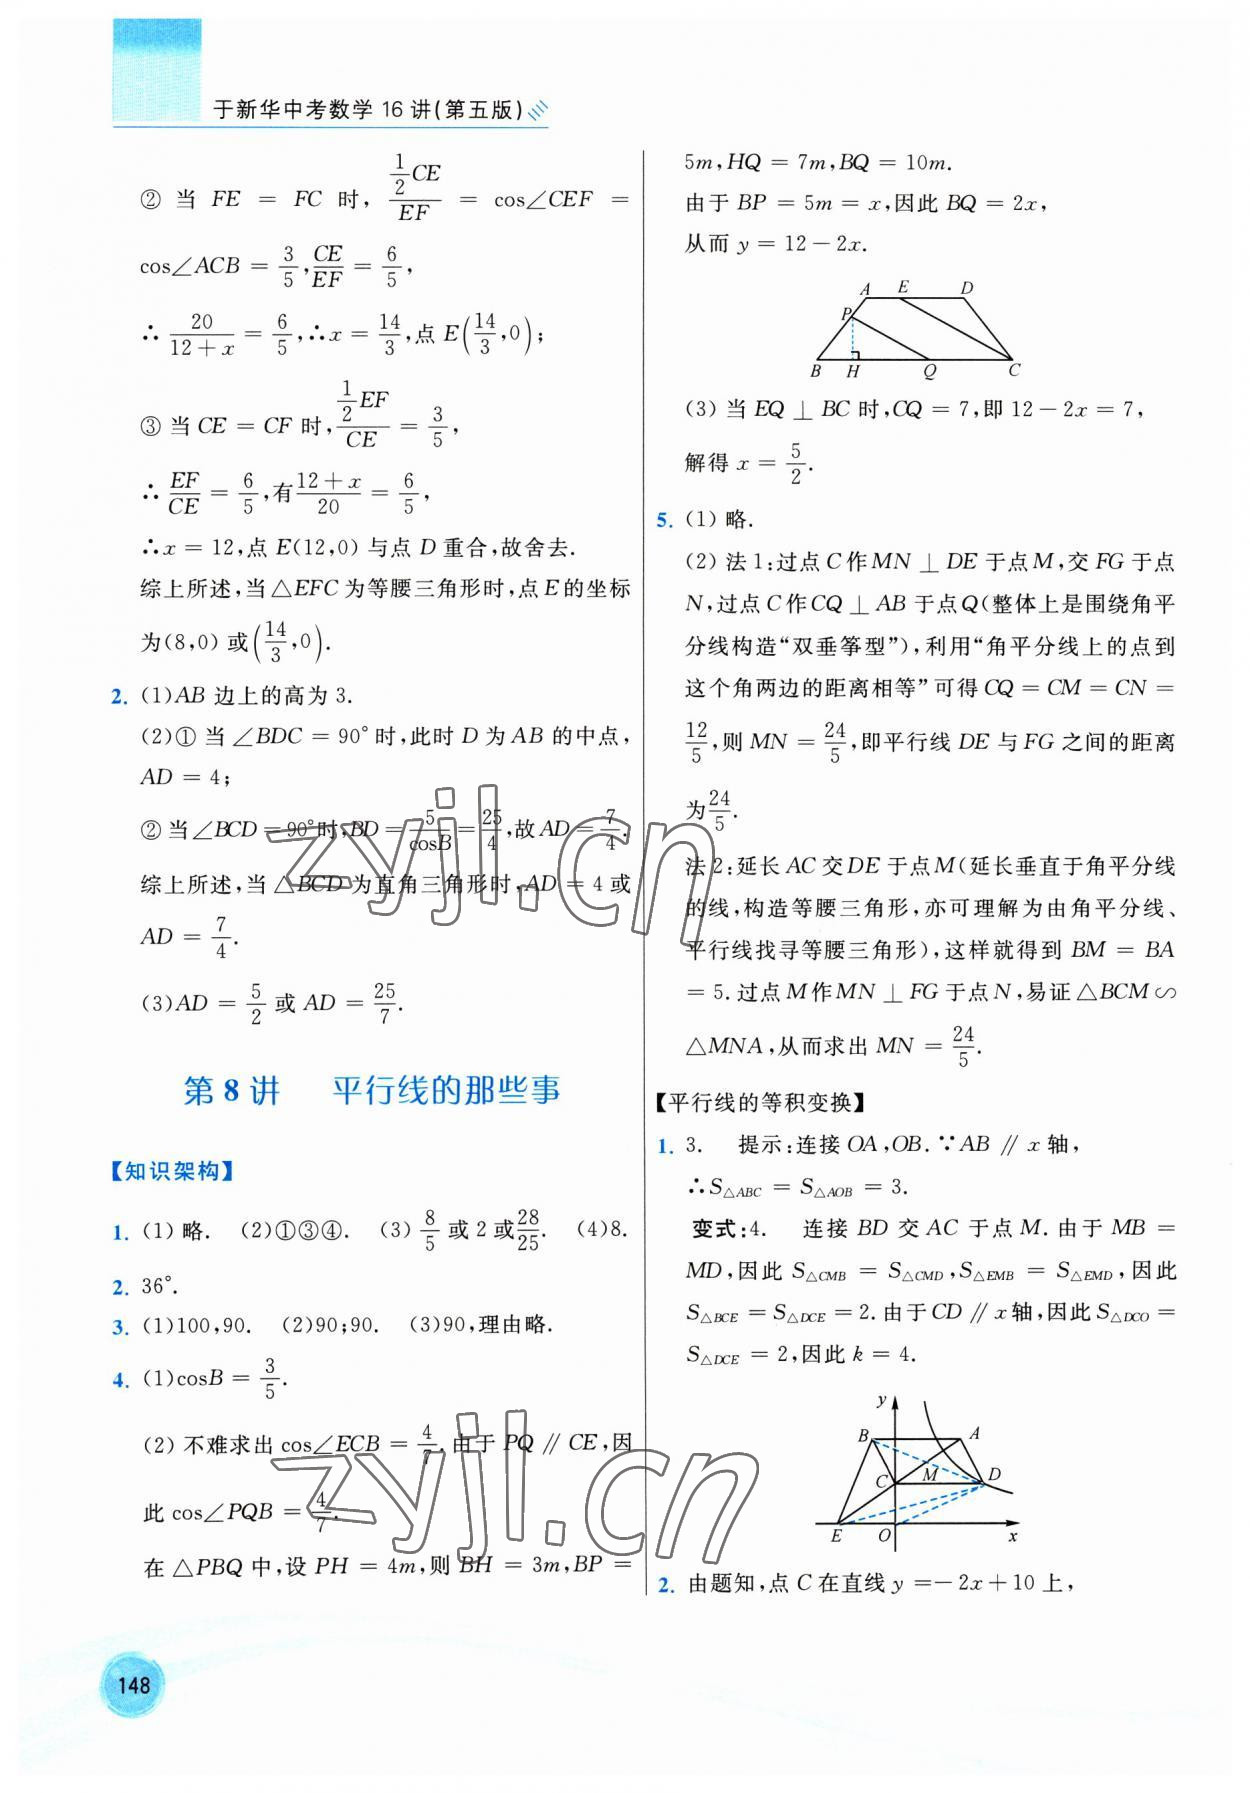 于新华中考数学16讲(第五版)
② 当 FE = FC 时, \frac{\frac{1}{2}CE}{EF} = cos∠CEF =
cos∠ACB = \frac{3}{5}, \frac{CE}{EF} = \frac{6}{5},
∴ \frac{20}{12+x} = \frac{6}{5}, ∴x = \frac{14}{3}, 点 E(\frac{14}{3},0);
③ 当 CE = CF 时, \frac{\frac{1}{2}EF}{CE} = \frac{3}{5},
∴ \frac{EF}{CE} = \frac{6}{5}, 有\frac{12+x}{20} = \frac{6}{5},
∴x = 12,点 E(12,0) 与点 D 重合,故舍去.
综上所述,当△EFC 为等腰三角形时,点 E 的坐标
为(8,0) 或(\frac{14}{3},0).
2. (1)AB 边上的高为 3.
(2)① 当 ∠BDC = 90° 时,此时 D 为 AB 的中点,
AD = 4;
② 当∠BCD = 90°时, BD = \frac{5}{cosB} = \frac{25}{4}, 故 AD = \frac{7}{4}.
综上所述,当 △BCD 为直角三角形时, AD = 4 或
AD = \frac{7}{4}.
(3)AD = \frac{5}{2} 或 AD = \frac{25}{7}.
第 8 讲 平行线的那些事
【知识架构】
1. (1) 略. (2)①③④. (3) \frac{8}{5} 或 2 或 \frac{28}{25}. (4)8.
2. 36°.
3. (1)100,90. (2)90;90. (3)90,理由略.
4. (1)cosB = \frac{3}{5}.
(2) 不难求出 cos∠ECB = \frac{4}{7}. 由于 PQ // CE,因
此 cos∠PQB = \frac{4}{7}.
在 △PBQ 中,设 PH = 4m,则 BH = 3m,BP =
148
5m,HQ = 7m,BQ = 10m.
由于 BP = 5m = x,因此 BQ = 2x,
从而 y = 12 - 2x.
A E D
P
B H Q C
(3) 当 EQ ⊥ BC 时,CQ = 7,即 12 - 2x = 7,
解得 x = \frac{5}{2}.
5. (1) 略.
(2) 法 1:过点 C 作 MN ⊥ DE 于点 M,交 FG 于点
N,过点 C 作 CQ ⊥ AB 于点 Q(整体上是围绕角平
分线构造“双垂筝型”),利用“角平分线上的点到
这个角两边的距离相等”可得 CQ = CM = CN =
\frac{12}{5},则 MN = \frac{24}{5},即平行线 DE 与 FG 之间的距离
为\frac{24}{5}.
法 2:延长 AC 交 DE 于点 M(延长垂直于角平分线
的线,构造等腰三角形,亦可理解为由角平分线、
平行线找寻等腰三角形),这样就得到 BM = BA
= 5.过点 M 作 MN ⊥ FG 于点 N,易证△BCM∽
△MNA,从而求出 MN = \frac{24}{5}.
【平行线的等积变换】
1. 3. 提示:连接 OA,OB.∵AB // x 轴,
∴S△ABC = S△AOB = 3.
变式:4. 连接 BD 交 AC 于点 M.由于 MB =
MD,因此 S△CMB = S△CMD,S△EMB = S△EMD,因此
S△BCE = S△DCE = 2.由于 CD // x 轴,因此 S△DCO =
S△DCE = 2,因此 k = 4.
y
B A
C M D
E O x
2. 由题知,点 C 在直线 y =- 2x + 10 上,
zyjl.cn
zyjl.cn